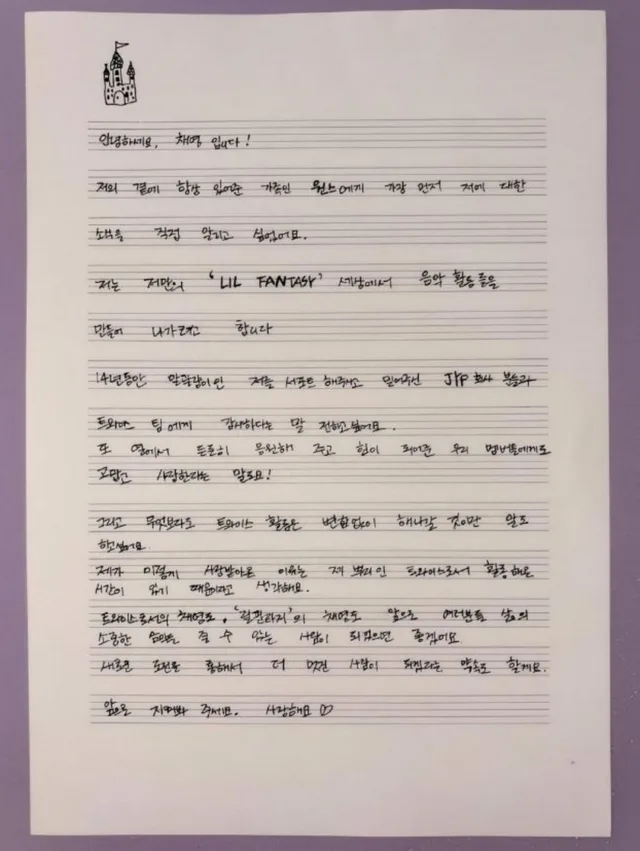 안녕하세요, 채영 입니다!
저의 곁에 항상 있어준 가족인 원스에게 가장 먼저 저에 대한
소식을 직접 알리고 싶었어요.
저는 저만의 'LIL FANTASY' 세상에서 음악 활동들을
만들어 나가려고 합니다
14년동안 말괄량이인 저를 서포트 해주시고 믿어주신 JYP 회사 분들과
트와이스 팀에게 감사하다는 말 전하고 싶어요.
또 옆에서 든든히 응원해 주고 힘이 되어준 우리 멤버들에게도
고맙고 사랑한다는 말도요!
그리고 무엇보다도 트와이스 활동은 변함없이 해나갈 것이란 말도
하고싶어요.
제가 이렇게 사랑받아온 이유는 제 뿌리인 트와이스로서 활동해온
시간이 있기 때문이라고 생각해요.
트와이스로서의 채영도, '릴판타지'의 채영도 앞으로 여러분들 삶의
소중한 의미를 줄 수 있는 사람이 되었으면 좋겠어요.
새로운 도전을 통해서 더 멋진 사람이 되겠다는 약속도 할게요.
앞으로 지켜봐 주세요. 사랑해요 ♡